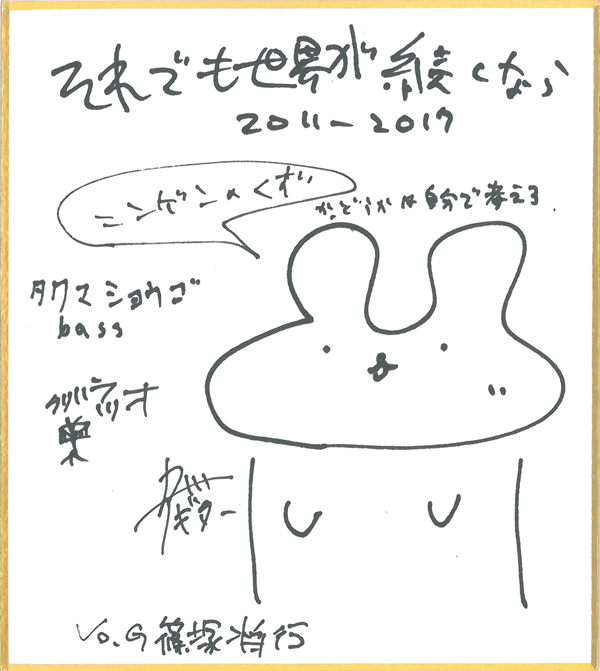 それでも世界が続くなら
2011-2017
ニンゲンのくず
かどうかは自分で考える
タクマショウゴ
bass
ツバラリオ
楽
ギター
Vo.G 篠塚将行